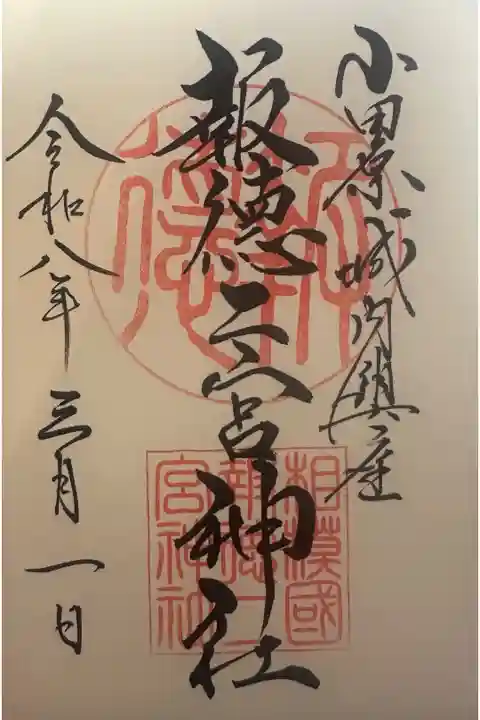 小田原城内鎮座
報徳二宮神社
令和八年三月一日
報徳
相模國
報徳二
宮神社